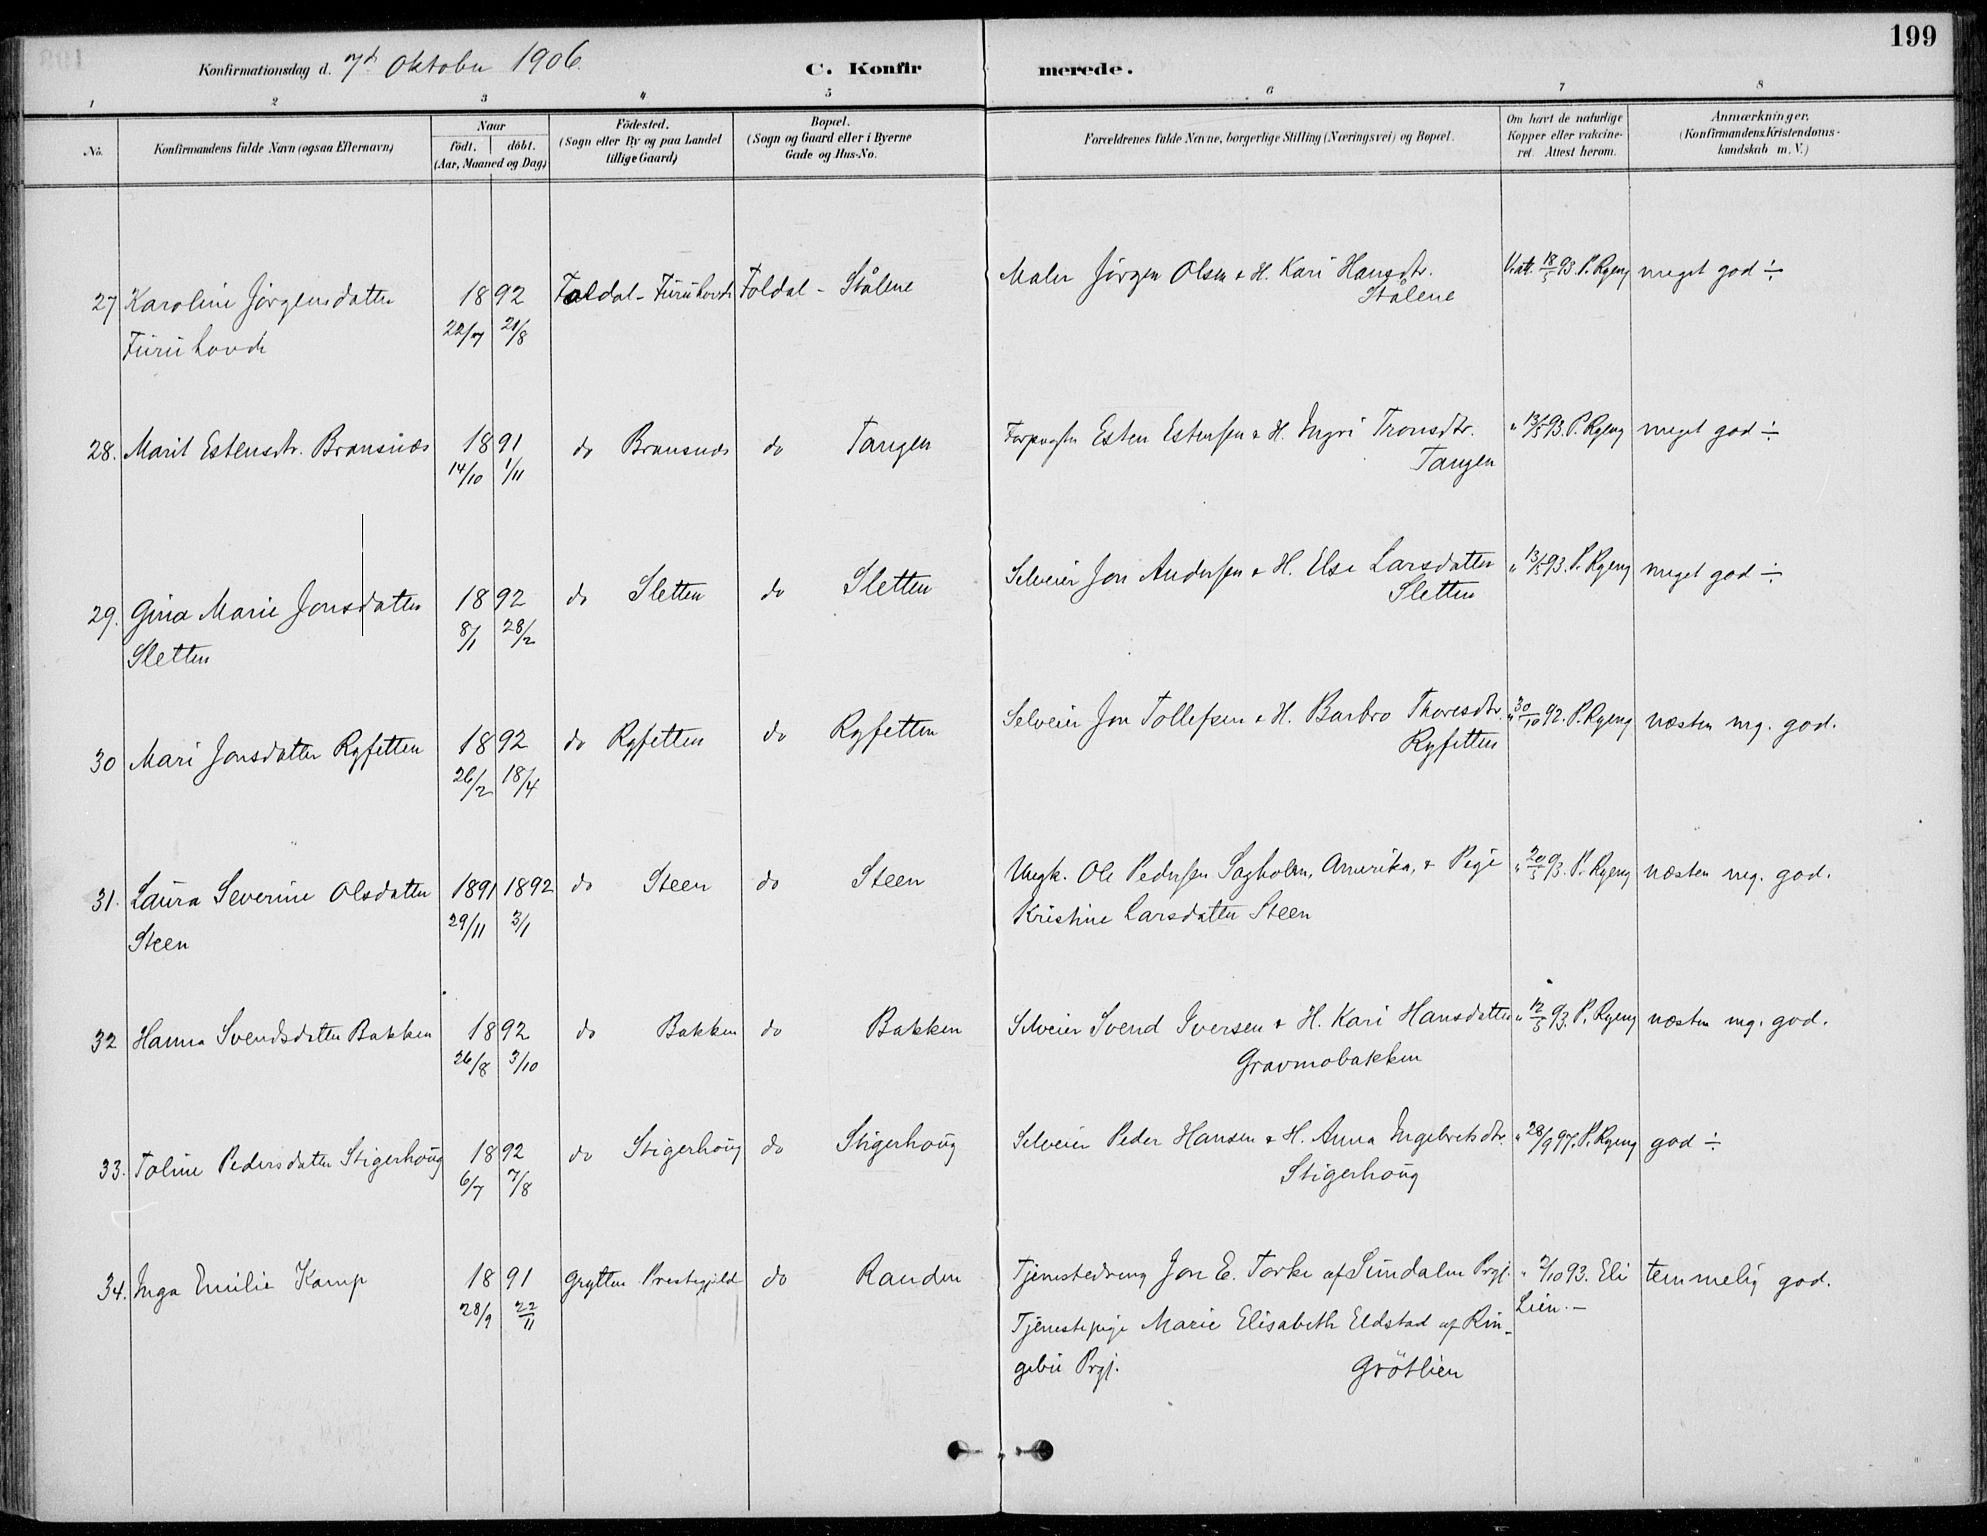 199
Konfirmationsdag d. 7de Oktober 1906.
C. Konfirmerede.
1 2 3 4 5 6 7 8
No.
Konfirmandens fulde Navn (ogsaa Efternavn)
Naar
födt. döbt.
(Aar, Maaned og Dag)
Födested.
(Sogn eller By og paa Landet
tillige Gaard)
Bopæl.
(Sogn og Gaard eller i Byerne
Gade og Hus-No.
Forældrenes fulde Navne, borgerlige Stilling (Næringsvei) og Bopæl.
Om havt de naturlige
Kopper eller vakcine-
ret. Attest herom.
Anmærkninger.
(Konfirmandens Kristendoms-
kundskab m. V.)
27 Karoline Jørgensdatter 1892 Foldal - Furuhovde Foldal - Stålene Maler Jørgen Olsen & H. Kari Hansdtr. Vat. 18/5 93. P. Ryeng meget god ÷
Furuhovde 22/7 21/8 Stålene
28. Marit Estensdtr. Bransnæs 1891 do Bransnæs do Tangen Esten Estensen & H. Ingri Tronsdtr. " 13/5 93. P. Ryeng meget god ÷
14/10 1/11 Tangen
29. Gina Marie Jonsdatter 1892 do Sletten do Sletten Selveier Jon Andersen & H. Else Larsdatter " 13/5 93. P. Ryeng meget god ÷
Sletten 8/1 28/2 Sletten
30 Mari Jonsdatter Ryfetten 1892 do Ryfetten do Ryfetten Selveier Jon Tollefsen & H. Barbro Thoresdtr. " 30/10 92. P. Ryeng næsten mg. god.
26/2 18/4 Ryfetten
31. Laura Severine Olsdatter 1891 1892 do Steen do Steen Ungk. Ole Pedersen Sagholen, Amerika, & Pige " 20/5 93. P. Ryeng næsten mg. god.
Steen 29/11 3/1 Kristine Larsdatter Steen
32 Hanna Svendsdatter Bakken 1892 do Bakken do Bakken Selveier Svend Iversen & H. Kari Hansdatter " 12/5 93. P. Ryeng næsten mg. god.
26/8 3/10 Gravmobakken
33. Toline Pedersdatter Stigerhoug 1892 do Stigerhoug do Stigerhoug Selveier Peder Hansen & H. Anna Ingebretsdtr. " 28/9 97. P. Ryeng god ÷
6/7 7/8 Stigerhoug
34. Inga Emilie Kamp 1891 Grytten Prestegjeld do Randen Tjenestedreng Jon E. Torke af Sundalen Prgj. 93. Eli temmelig god.
28/9 22/11 Lien. –
Tjenestepige Marie Elisabeth Eldstad af Rin-
gebu Prgj. Grötlien